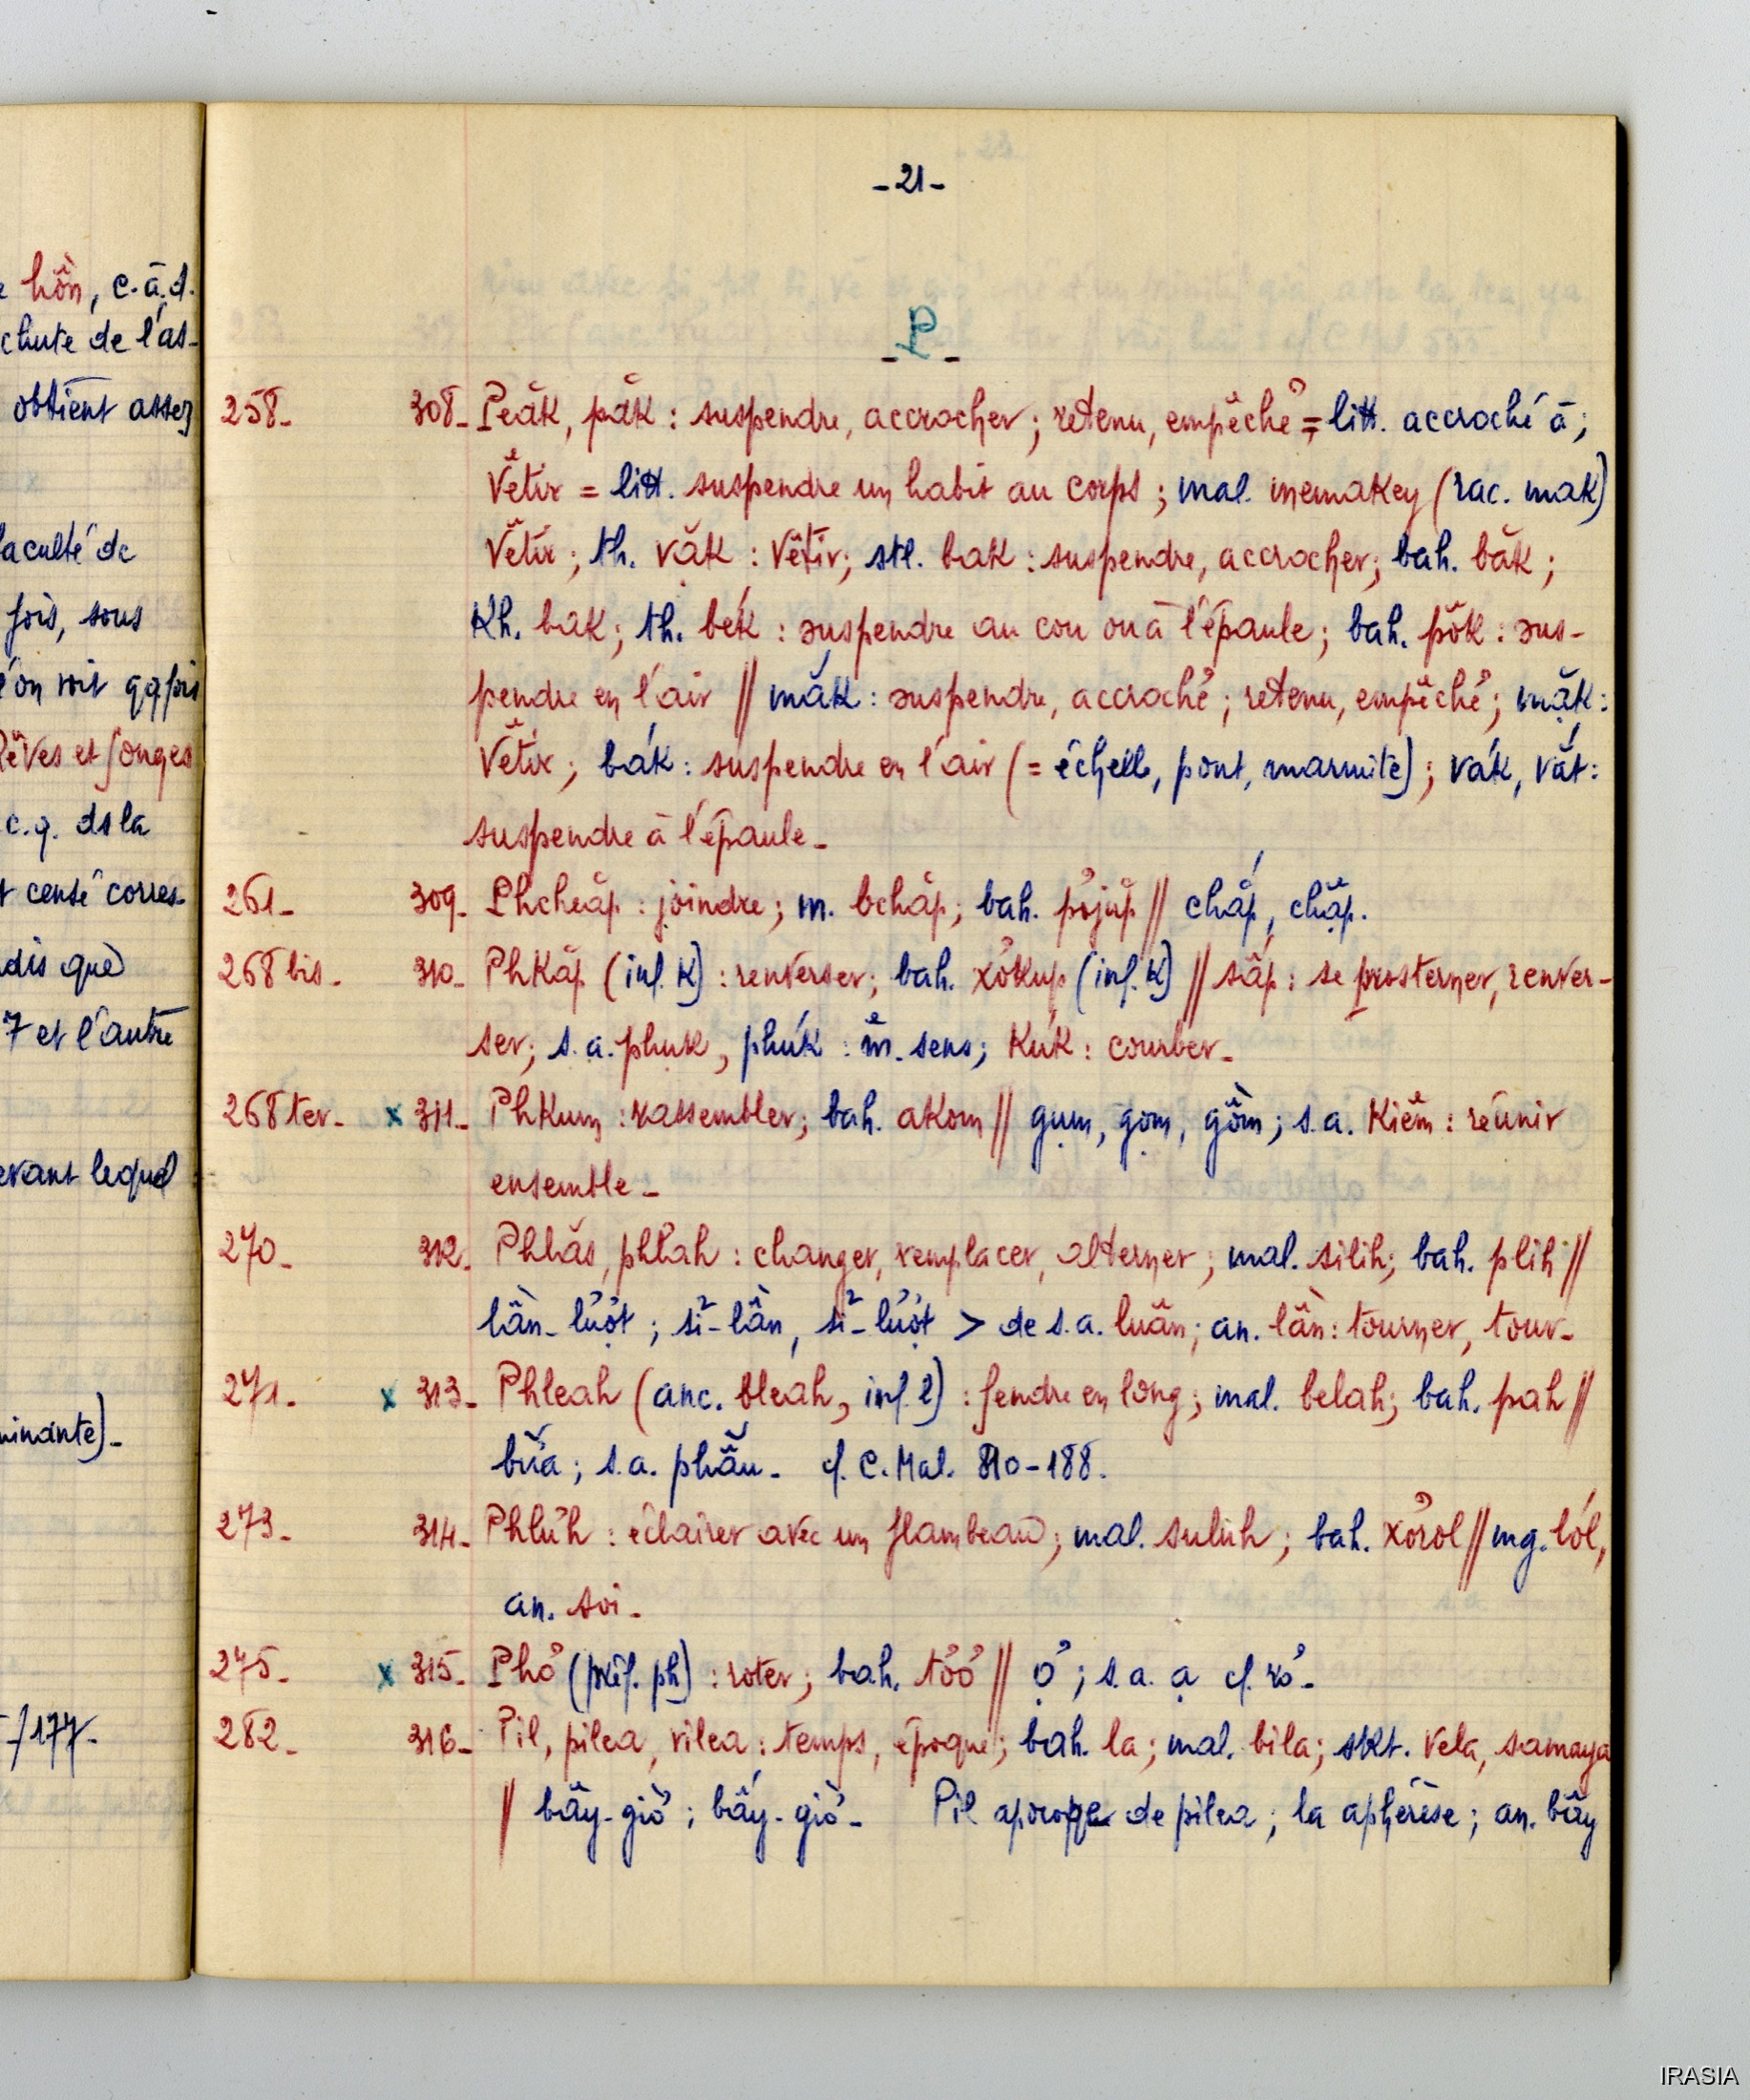 -21-
hồn, c.à.d.
chute de l'as-
obtient assez
faculté de
fois, sous
l'on voit qqfois
Rêves et songes
c.q. ds la
censé corres-
dis que
7 et l'autre
evant lequel
minante)-
/177-
-P-
258- 308- Peăk, păk : suspendre, accrocher ; retenu, empêché = litt. accroché à ;
Vêtir = litt. suspendre un habit au corps ; mal. memakey (rac. mak)
Vêtir ; th. văk : Vêtir ; stl. bak : suspendre, accrocher ; bah. băk ;
Kh. bak ; th. bék : suspendre au cou ou à l'épaule ; bah. pŏk : sus-
pendre en l'air // mắk : suspendre, accroché ; retenu, empêché ; mặk :
Vêtir ; bák : suspendre en l'air (= échelle, pont, marmite) ; vák, vắt :
suspendre à l'épaule-
261- 309- Phcheăp : joindre ; m. bchăp ; bah. pơjŭp // chắp, chặp.
268 bis- 310- Phkăp (inf. k) : renverser ; bah. xơkup (inf. k) // sấp : se prosterner, renver-
ser ; s.a. phuk, phúk : m̂. sens ; Kúk : courber-
268 ter- x 311- Phkum : rassembler ; bah. akom // gụm, gọm, gồm ; s.a. Kiêm : réunir
ensemble-
270- 312- Phlăs, phlah : changer, remplacer, alterner ; mal. silih ; bah. plih //
lần-lượt ; sĩ-lần, sĩ-lượt > de s.a. luân ; an. lần : tourner, tour-
271- x 313- Phleah (anc. bleah, inf. l) : fendre en long ; mal. belah ; bah. pah //
bửa ; s.a. phẫu- cf. C. Mal. 810-188.
273- 314- Phlŭh : éclairer avec un flambeau ; mal. suluh ; bah. xơrol // mg. lól,
an. soi-
275- x 315- Phơ (préf. ph) : roter ; bah. tơơ // ợ ; s.a. ạ cf. rơ-
282- 316- Pil, pilea, vilea : temps, époque ; bah. la ; mal. bila ; skt. vela, samaya
// bây-giờ ; bấy-giờ- Pil apocope de pilea ; la aphérèse ; an. bây
IRASIA